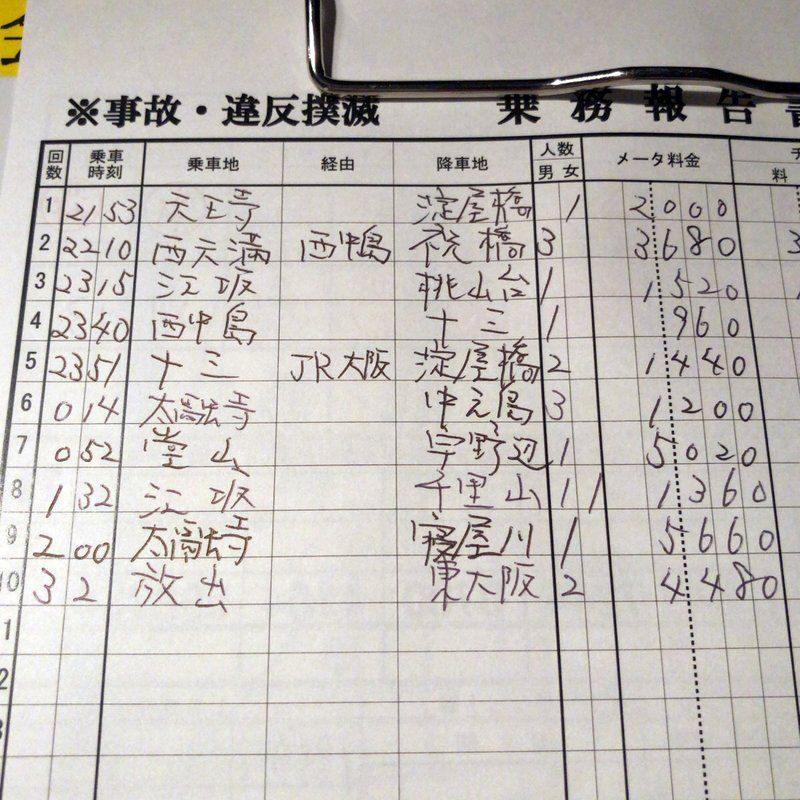 ※事故・違反撲滅 乗務報告書
回数 乗車時刻 乗車地 経由 降車地 人数 男 女 メータ料金 料
1 21 53 天王寺 淀屋橋 1 2000
2 22 10 西天満 西中島 祝橋 3 3680 3
3 23 15 江坂 桃山台 1 1520 1
4 23 40 西中島 十三 1 960
5 23 51 十三 JR大阪 淀屋橋 2 1440
6 0 14 太融寺 中之島 3 1200
7 0 52 堂山 宇野辺 1 5020
8 1 32 江坂 千里山 1 1 1360
9 2 00 太融寺 寝屋川 1 5660
10 3 2 放出 東大阪 2 4480
1
2
3